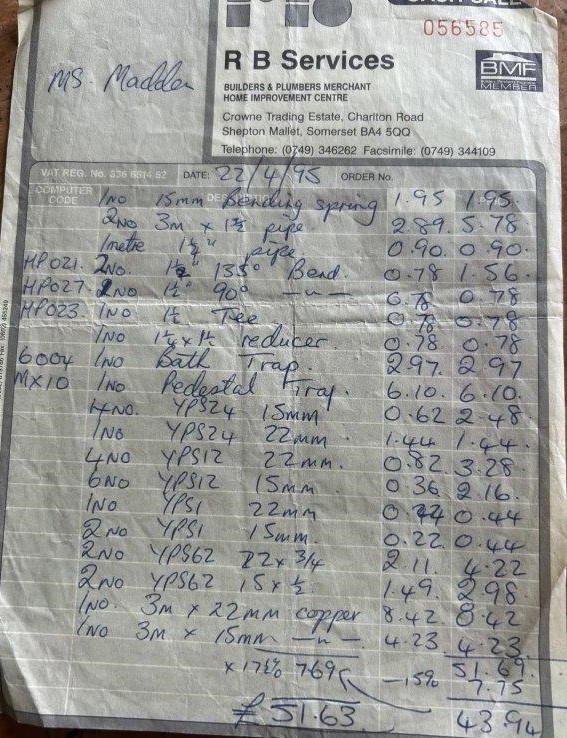 CASH SALE
056585
R B Services
BMF
MEMBER
BUILDERS & PLUMBERS MERCHANT
HOME IMPROVEMENT CENTRE
Crowne Trading Estate, Charlton Road
Shepton Mallet, Somerset BA4 5QQ
Telephone: (0749) 346262 Facsimile: (0749) 344109
Ms. Madden
VAT REG. No. 336 6614 52 DATE: 22/4/95 ORDER No.
COMPUTER CODE
1NO 15mm Bending spring 1.95 1.95
2NO 3m x 1½ pipe 2.89 5.78
1metre 1¼" pipe 0.90 0.90
HP021. 2NO. 1½" 135° Bend. 0.78 1.56
HP027. 1NO 1½" 90° —"— 0.78 0.78
HP023. 1NO 1½ Tee 0.78 0.78
1NO 1¼ x 1½ reducer. 0.78 0.78
6004 1NO Bath Trap. 2.97. 2.97
MX10 1NO Pedestal Trap. 6.10. 6.10.
4NO. YPS24 15mm 0.62 2.48
1NO YPS24 22mm. 1.44 1.44.
4NO YPS12 22mm. 0.82 3.28
6NO YPS12 15mm 0.36 2.16.
1NO YPS1 22mm 0.44 0.44
2NO YPS1 15mm. 0.22 0.44
2NO YPS62 22 x 3/4 2.11. 4.22
2NO YPS62 15 x ½ 1.49. 2.98
1NO. 3m x 22mm copper 8.42 8.42
1NO 3m x 15mm —"— 4.23 4.23
51.69.
x 17½% 7.69 —15% 7.75
£51.63 43.94